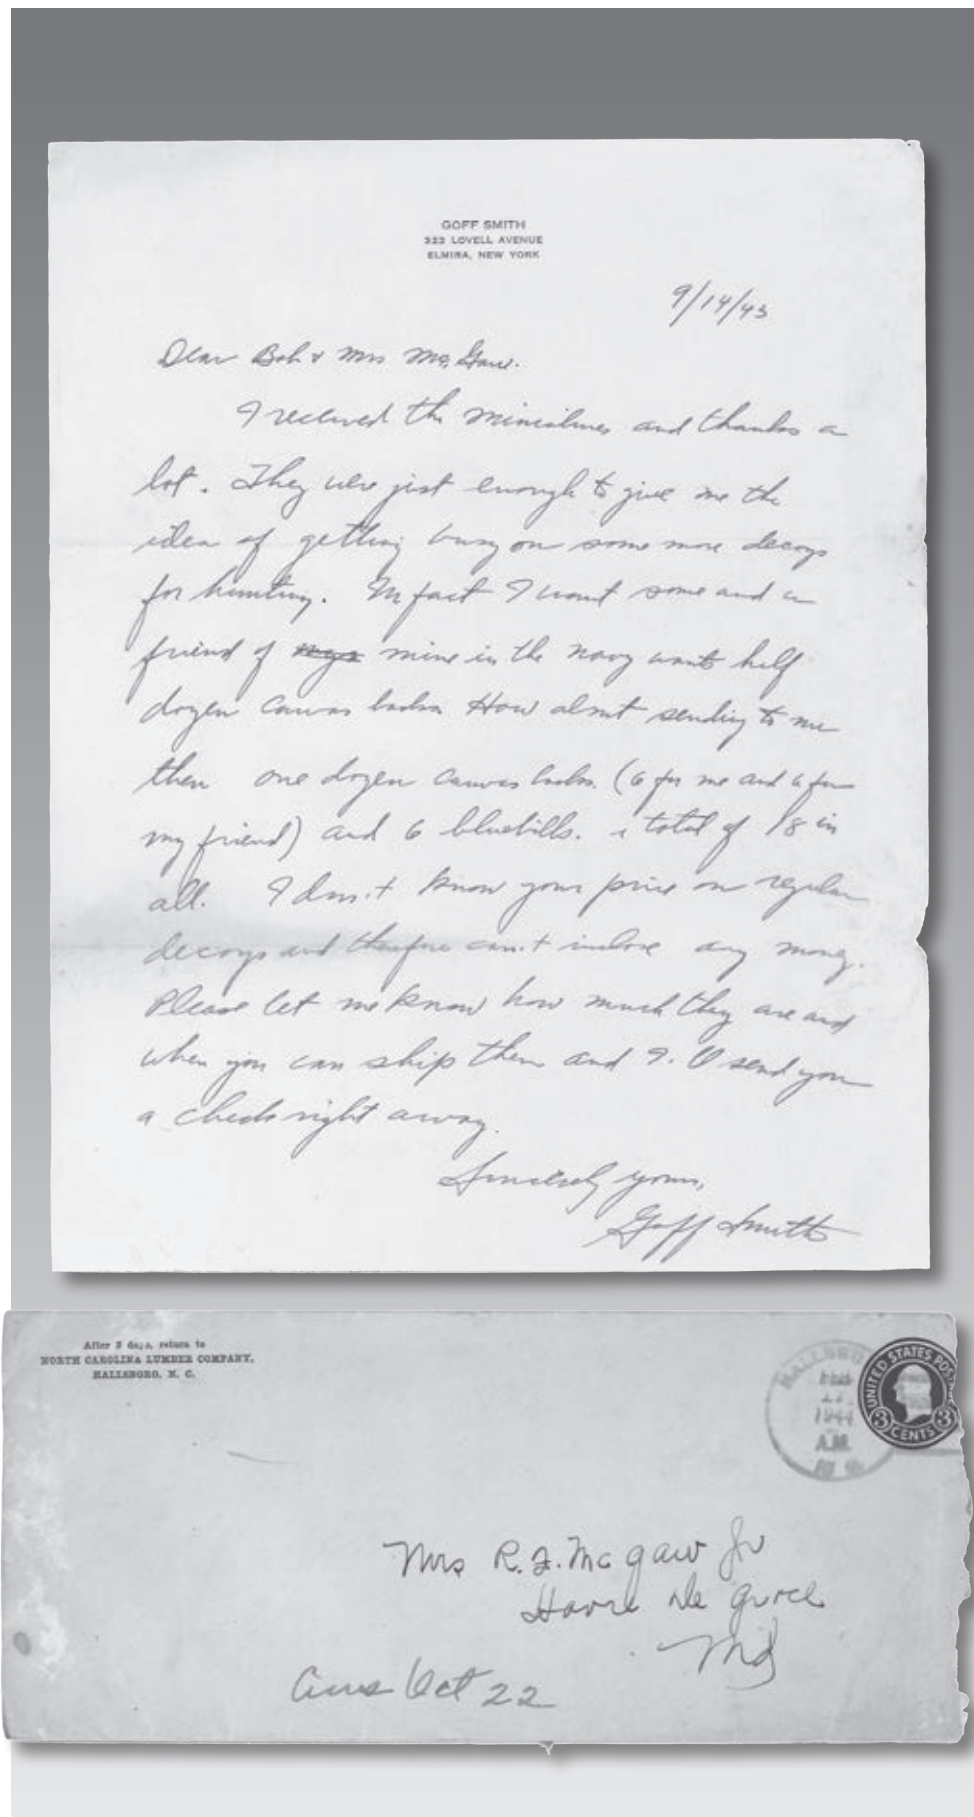 GOFF SMITH
323 LOVELL AVENUE
ELMIRA, NEW YORK
9/14/43
Dear Bob & Mrs McGaw.
I received the miniatures and thanks a
lot. They were just enough to give me the
idea of getting busy on some more decoys
for hunting. In fact I want some and a
friend of mine in the navy wants half
dozen canvas backs How about sending to me
then one dozen canvas backs. (6 for me and 6 for
my friend) and 6 bluebills. a total of 18 in
all. I don't know your price on regular
decoys and therefore can't inclose any money.
Please let me know how much they are and
when you can ship them and I'll send you
a check right away.
Sincerely yours,
Goff Smith
After 3 days, return to
NORTH CAROLINA LUMBER COMPANY,
HALLSBORO, N. C.
HALLSBORO
1944
A.M.
N. C.
UNITED STATES POSTAGE
3 CENTS 3
Mrs R. F. McGaw Jr
Havre De Grace
Md
Ans Oct 22